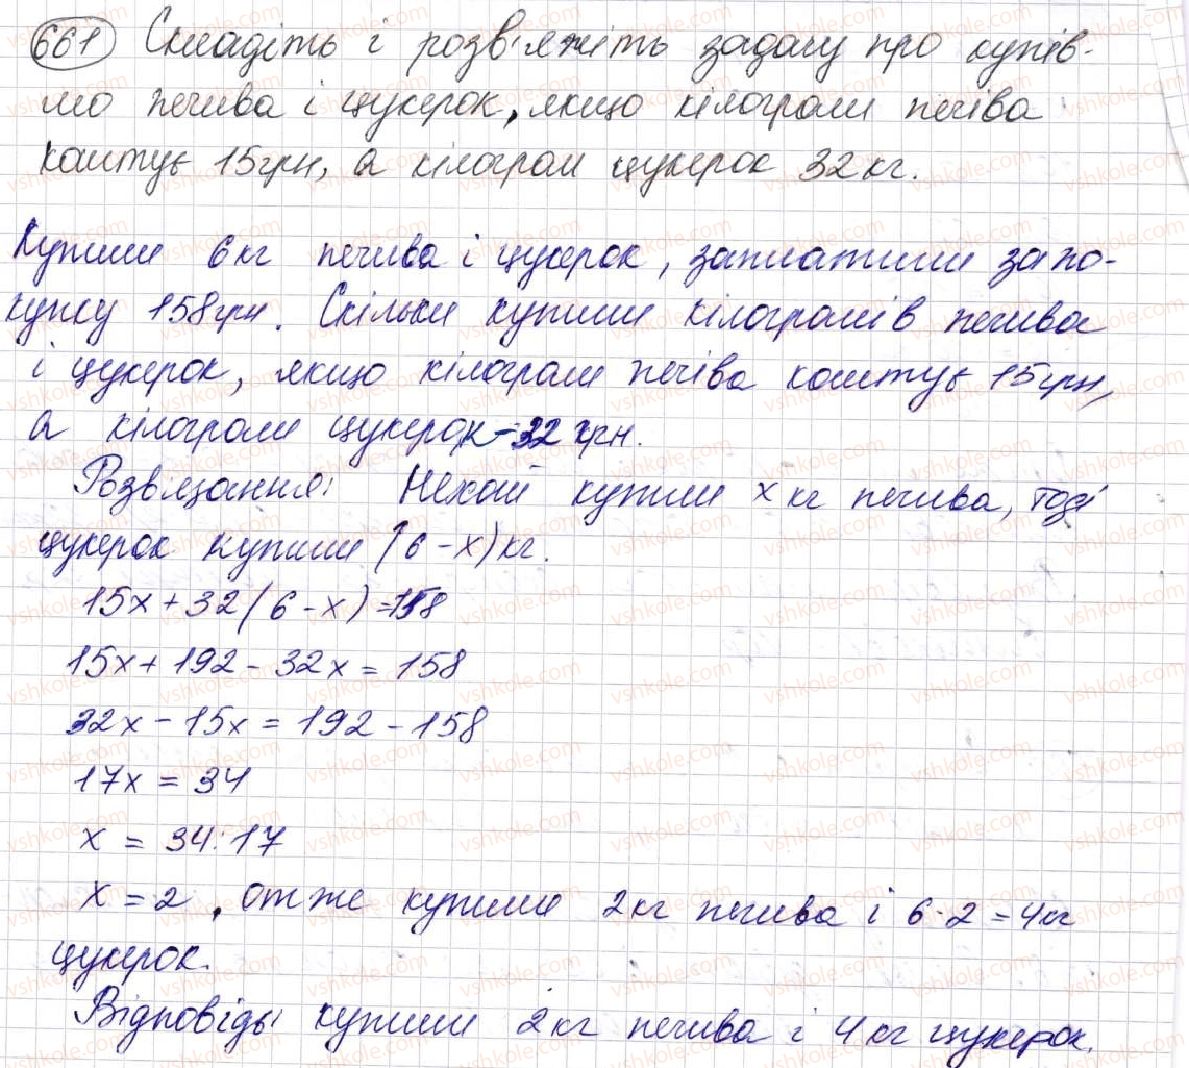 661 Складіть і розв'яжіть задачу про купів-
лю печива і цукерок, якщо кілограм печіва
коштує 15грн, а кілограм цукерок 32кг.
Купили 6кг печива і цукерок, заплатили за по-
купку 158грн. Скільки купили кілограмів печива
і цукерок, якщо кілограм печіва коштує 15грн,
а кілограм цукерок-32 грн.
Розв'язання: Нехай купили х кг печива, тоді
цукерок купили (6-х)кг.
15х+32(6-х)=158
15х+192-32х=158
32х-15х=192-158
17х=34
х=34:17
х=2, отже купили 2кг печива і 6-2=4кг
цукерок.
Відповідь: купили 2кг печива і 4кг цукерок.
vshkole.com